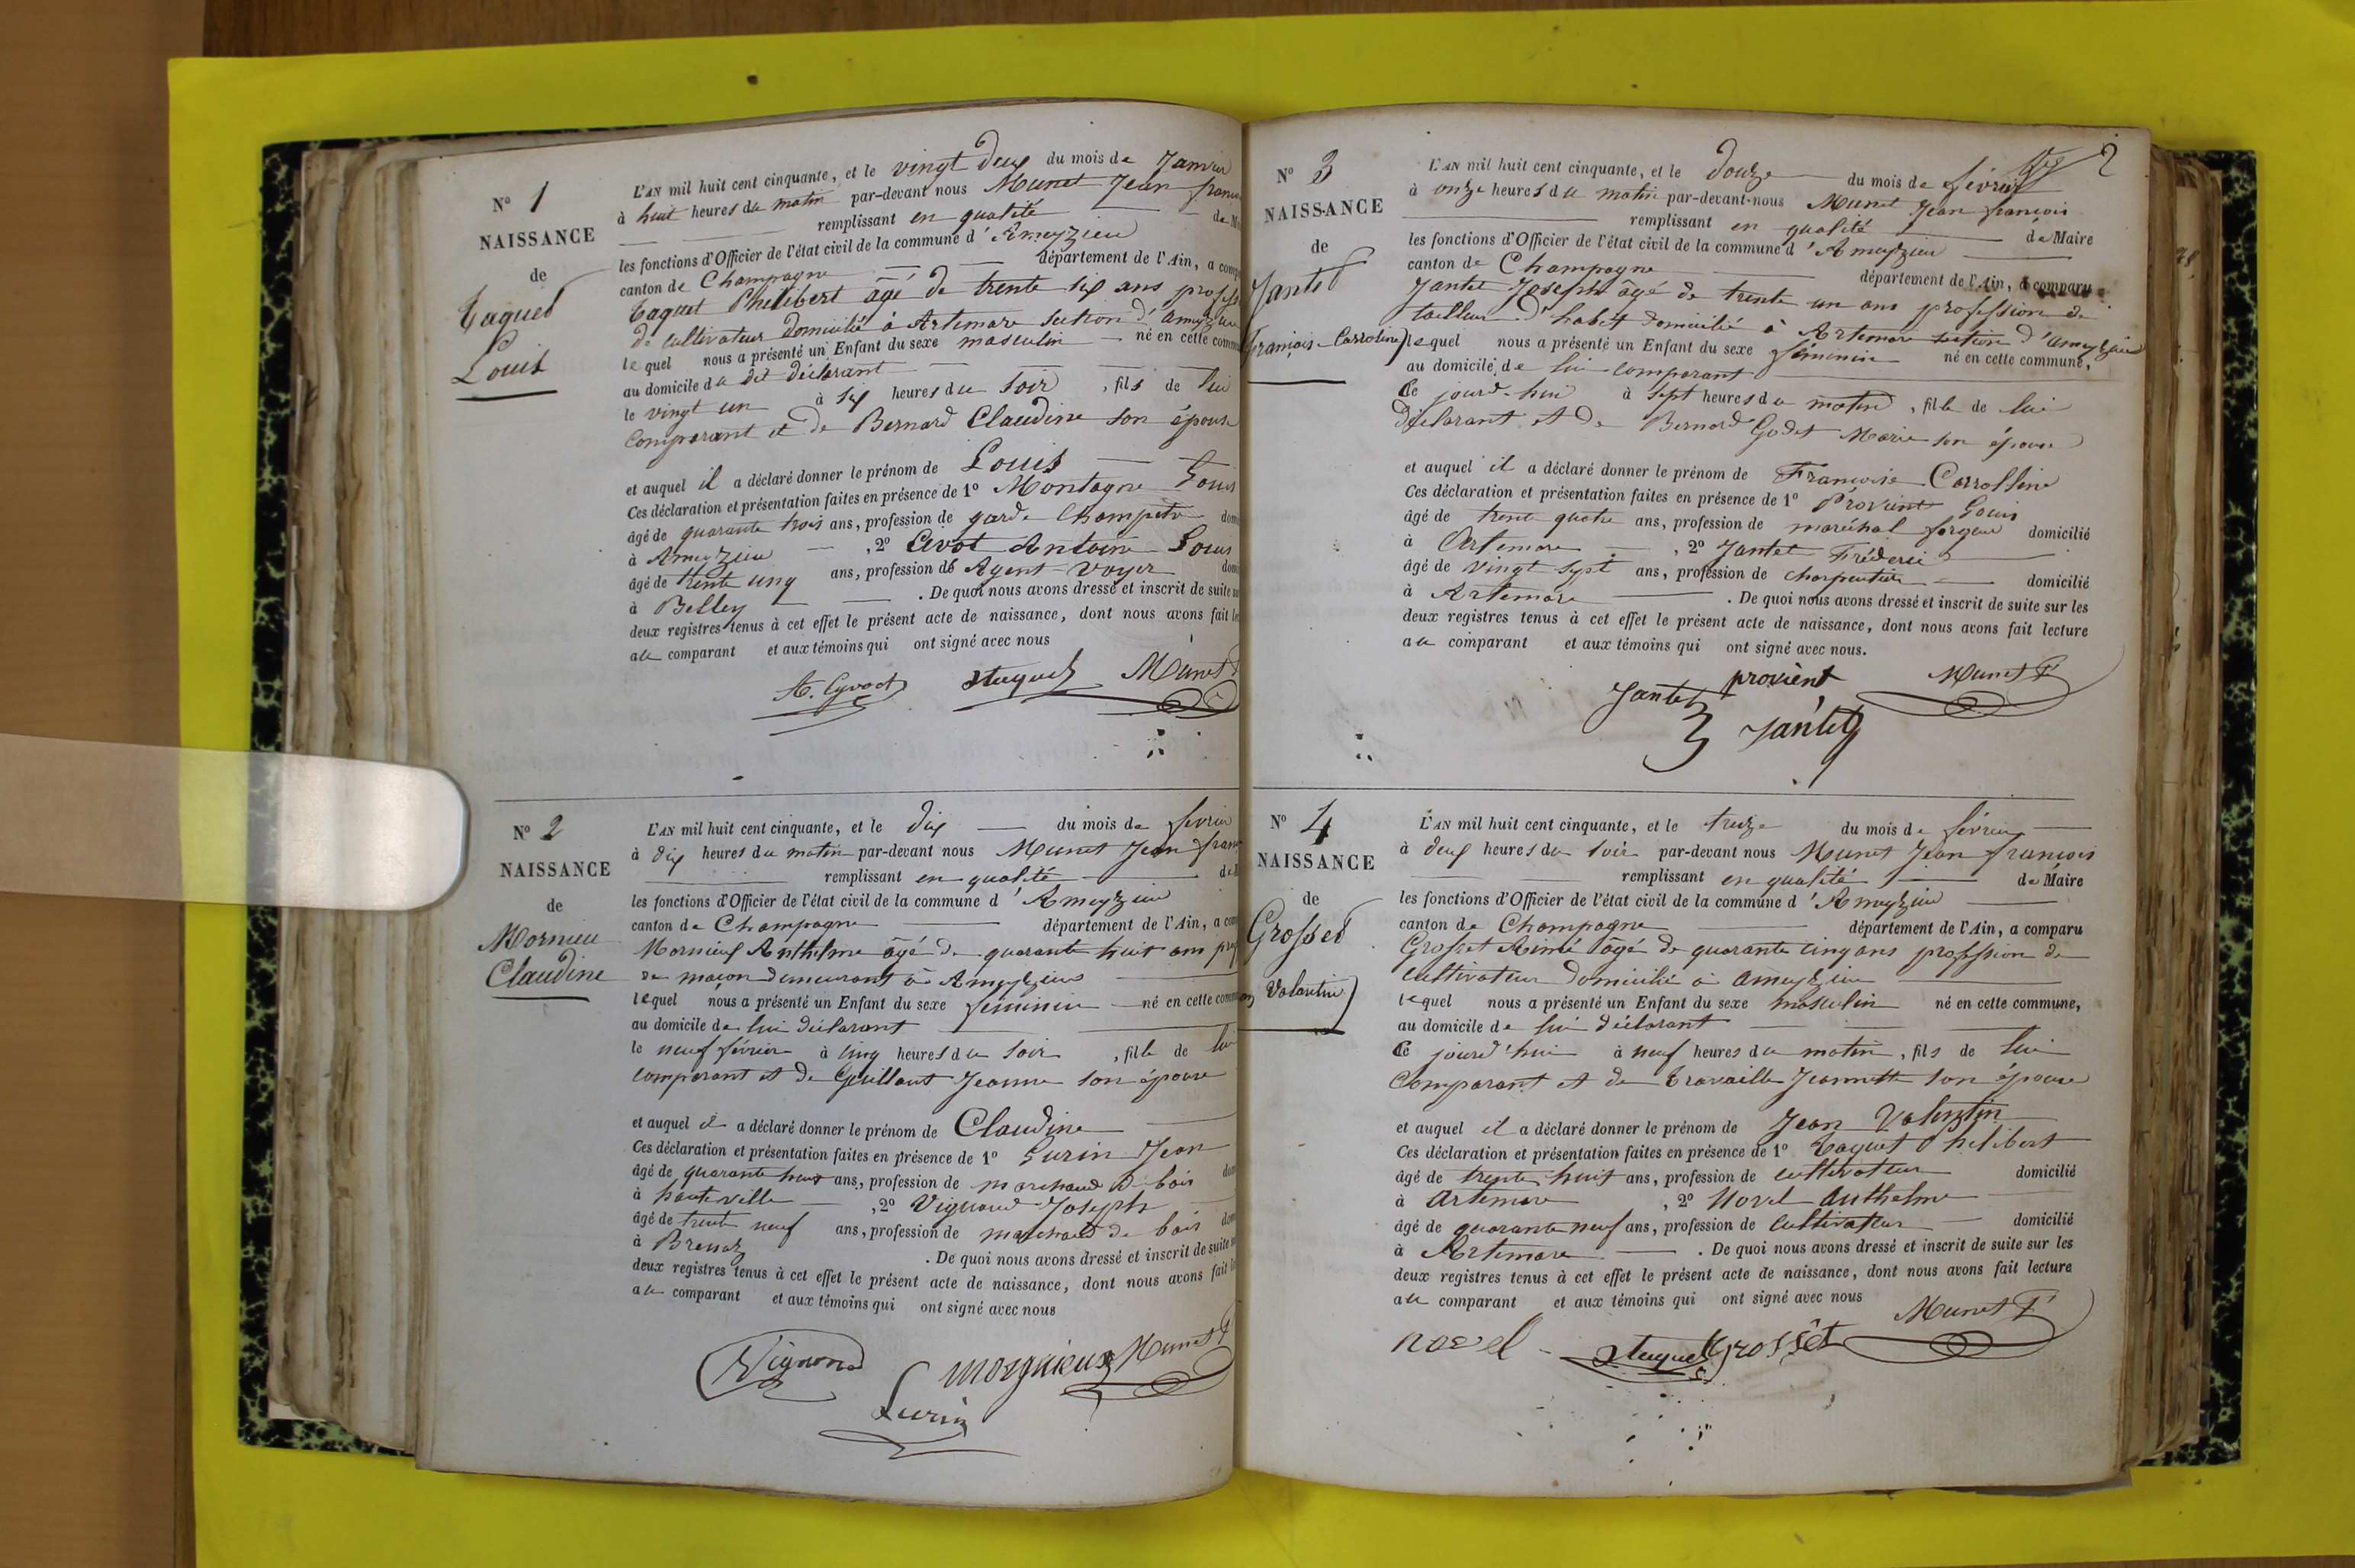 N° 1
NAISSANCE
de
Taquet
Louis
L'AN mil huit cent cinquante, et le vingt deux du mois de Janvier
à huit heures du matin par-devant nous Munet Jean franç
remplissant en qualité de M
les fonctions d'Officier de l'état civil de la commune d'Ameyzieu
canton de Champagne département de l'Ain, a comp
Taquet Philibert âgé de trente six ans profess
de cultivateur domicilié à Artemare section d'ameyzieu
lequel nous a présenté un Enfant du sexe masculin né en cette comm
au domicile du dit déclarant
le vingt un à six heures du soir, fils de lui
Comparant et de Bernard Claudine son épouse
et auquel il a déclaré donner le prénom de Louis
Ces déclaration et présentation faites en présence de 1° Montagne Louis
âgé de quarante trois ans, profession de garde Champêtre dom
à Ameyzieu, 2° Antoine Louis
âgé de trente cinq ans, profession de Agent-Voyer dom
à Belley. De quoi nous avons dressé et inscrit de suite su
deux registres tenus à cet effet le présent acte de naissance, dont nous avons fait le
au comparant et aux témoins qui ont signé avec nous
Munet F
N° 2
NAISSANCE
de
Mornieu
Claudine
L'AN mil huit cent cinquante, et le dix du mois de février
à dix heures du matin par-devant nous Munet Jean franç
remplissant en qualité de M
les fonctions d'Officier de l'état civil de la commune d'Ameyzieu
canton de Champagne département de l'Ain, a com
Mornieux Anthelme âgé de quarante huit ans prof
de maçon demeurant à Ameyzieu
lequel nous a présenté un Enfant du sexe féminin né en cette commu
au domicile de lui déclarant
le neuf février à cinq heures du soir, fille de lui
comparant et de Guillaut Jeanne son épouse
et auquel il a déclaré donner le prénom de Claudine
Ces déclaration et présentation faites en présence de 1° Lurin Jean
âgé de quarante huit ans, profession de marchand de bois dom
à hauteville, 2° Vignaud Joseph
âgé de trente neuf ans, profession de marchand de bois dom
à Brenaz. De quoi nous avons dressé et inscrit de suite su
deux registres tenus à cet effet le présent acte de naissance, dont nous avons fait le
au comparant et aux témoins qui ont signé avec nous
Munet F
Lurin
2
N° 3
NAISSANCE
de
Jantet
françois-Carroline
L'AN mil huit cent cinquante, et le douze du mois de février
à onze heures du matin par-devant-nous Munet Jean françois
remplissant en qualité de Maire
les fonctions d'Officier de l'état civil de la commune d'Ameyzieu
canton de Champagne département de l'Ain, a comparu
Jantet Joseph âgé de trente un ans profession de
tailleur d'habit domicilié à Artemare section d'ameyzieu
lequel nous a présenté un Enfant du sexe féminin né en cette commune,
au domicile de lui comparant
Ce jourd-hui à sept heures du matin, fille de lui
déclarant et de Bernard Godet Marie son épouse
et auquel il a déclaré donner le prénom de Françoise Carolline
Ces déclaration et présentation faites en présence de 1° Provient Louis
âgé de trente quatre ans, profession de maréchal forgeur domicilié
à Artemare, 2° Jantet Fréderic
âgé de vingt sept ans, profession de charpentier domicilié
à Artemare. De quoi nous avons dressé et inscrit de suite sur les
deux registres tenus à cet effet le présent acte de naissance, dont nous avons fait lecture
au comparant et aux témoins qui ont signé avec nous.
Jantet provient Munet F
Jantet
N° 4
NAISSANCE
de
Grosset
Valantin
L'AN mil huit cent cinquante, et le treize du mois de février
à deux heures du soir par-devant nous Munet Jean françois
remplissant en qualité de Maire
les fonctions d'Officier de l'état civil de la commune d'Ameyzieu
canton de Champagne département de l'Ain, a comparu
Grosset Aimé âgé de quarante cinq ans profession de
cultivateur domicilié à ameyzieu
lequel nous a présenté un Enfant du sexe masculin né en cette commune,
au domicile de lui déclarant
Ce jourd'hui à neuf heures du matin, fils de lui
Comparant et de Travaille Jeannette son épouse
et auquel il a déclaré donner le prénom de Jean Valentin
Ces déclaration et présentation faites en présence de 1° Taquet Philibert
âgé de trente huit ans, profession de cultivateur domicilié
à Artemare, 2° Novel Anthelme
âgé de quarante neuf ans, profession de Cultivateur domicilié
à Artemare. De quoi nous avons dressé et inscrit de suite sur les
deux registres tenus à cet effet le présent acte de naissance, dont nous avons fait lecture
au comparant et aux témoins qui ont signé avec nous
Grosset Munet F